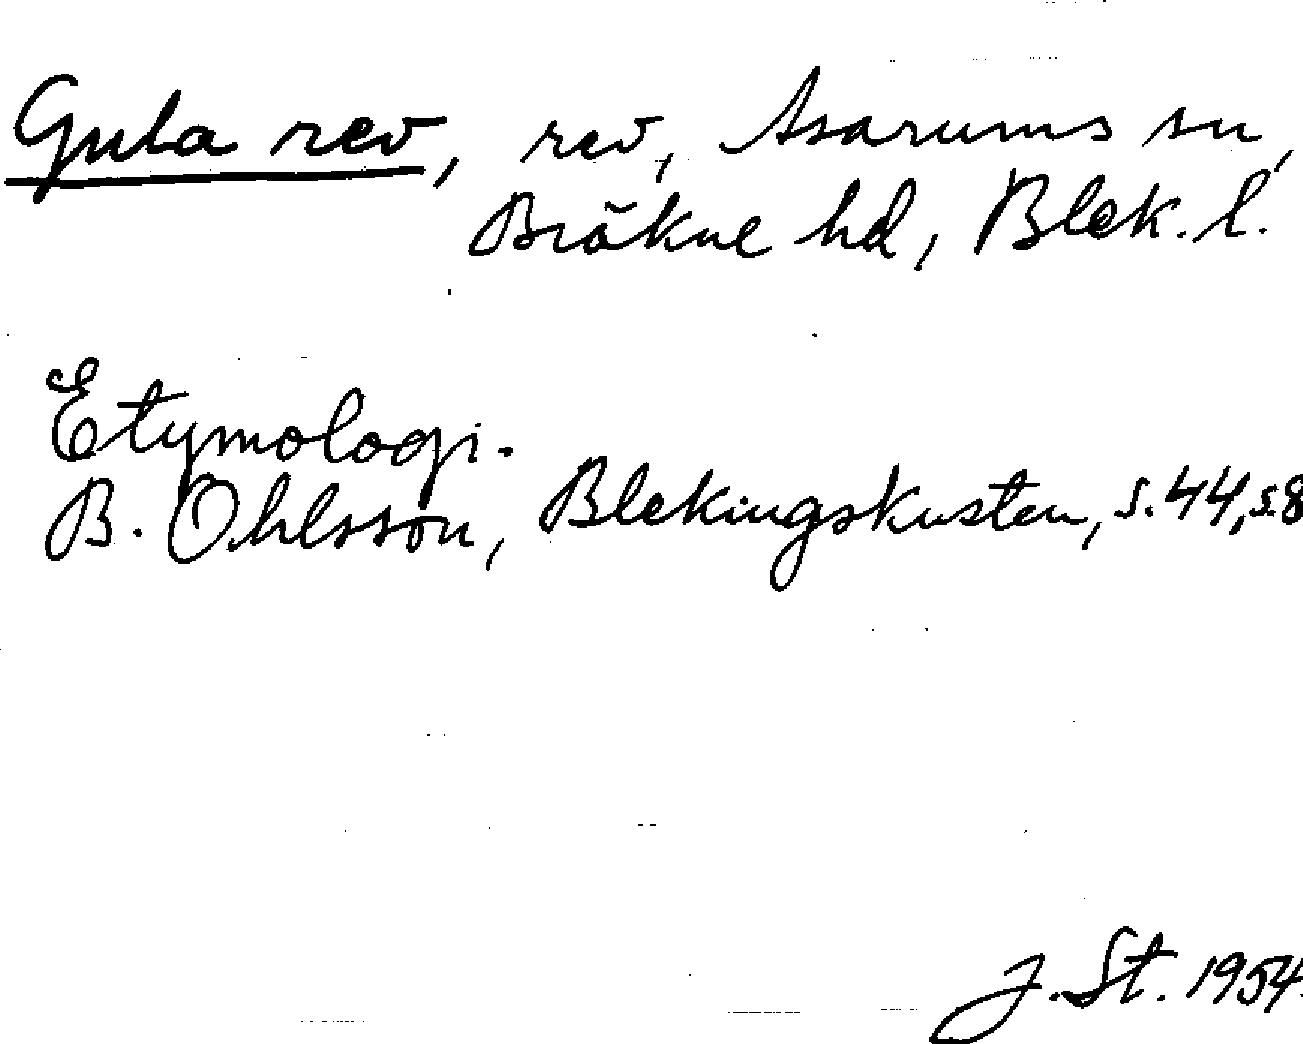 Gula rev, rev, Asarums sn,
Bräkne hd, Blek. l.
Etymologi.
B. Ohlsson, Blekingskusten, s. 44, s. 8
J. St. 1954.